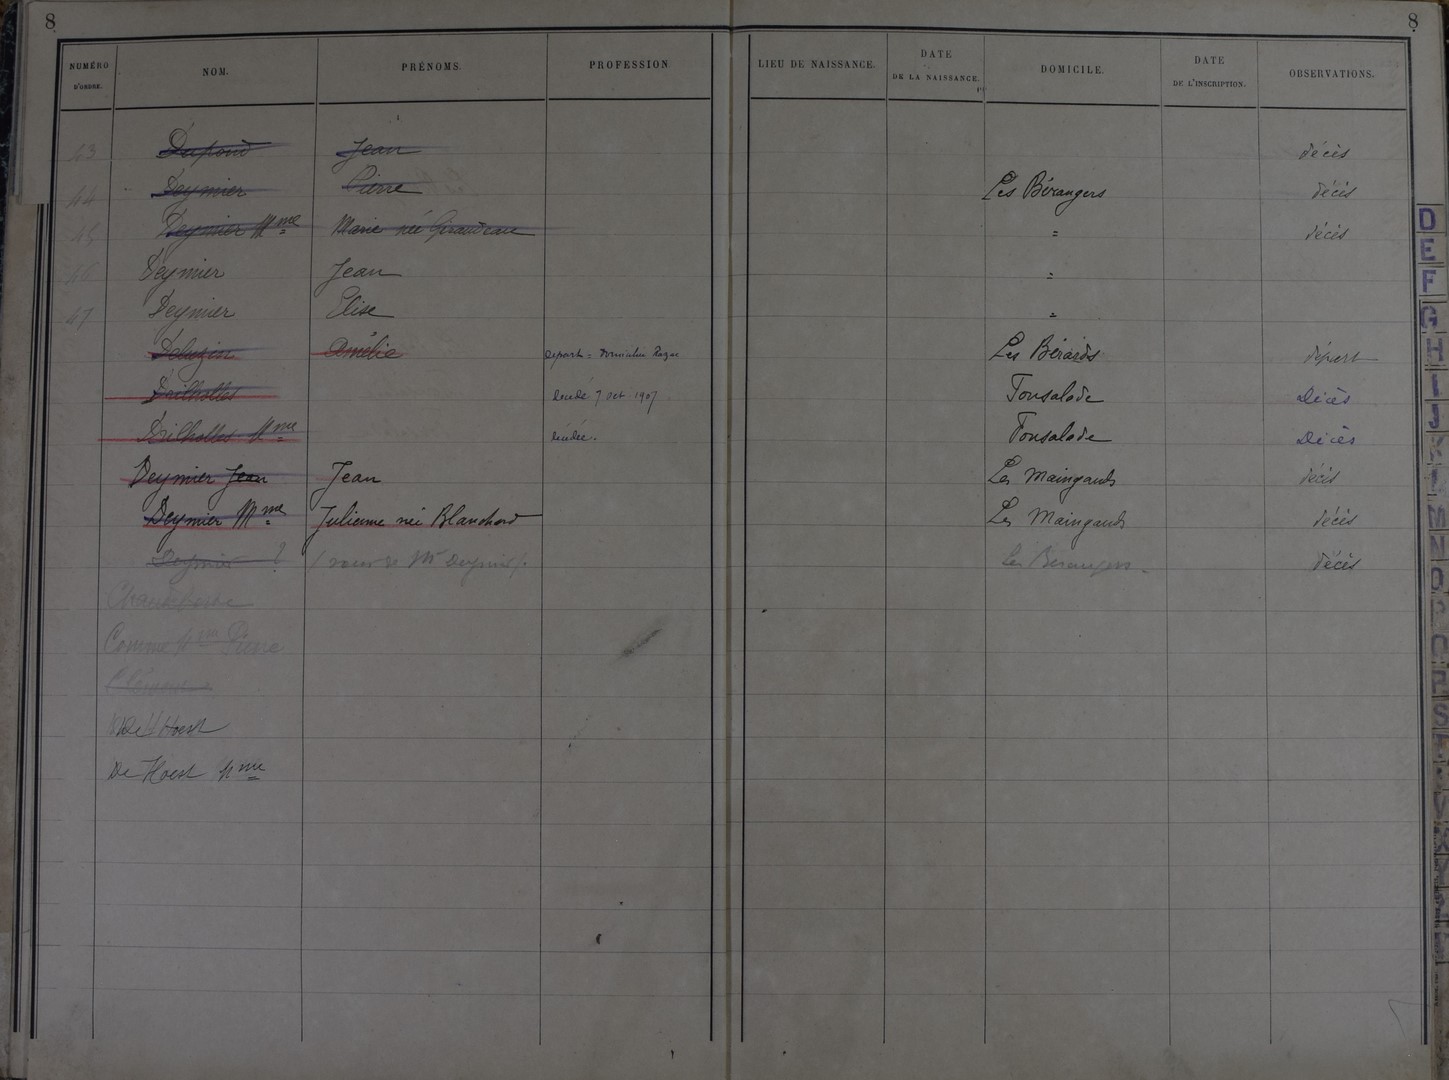 8 8
NUMÉRO D'ORDRE. NOM. PRÉNOMS. PROFESSION LIEU DE NAISSANCE. DATE DE LA NAISSANCE. DOMICILE. DATE DE L'INSCRIPTION. OBSERVATIONS.
43 Dupond Jean décès
44 Deymier Pierre Les Bérangers décès
45 Deymier Mme Marie née Giraudeau " décès
46 Deymier Jean "
47 Deymier Elise "
Amélie Les Bérards départ
Drilholles décédé 7 oct 1907 Fonsalade Décès
Drilholles Mme décédée. Fonsalade Décès
Deymier Jean Jean Les Maingauds décès
Deymier Mme Julienne née Blanchard Les Maingauds décès
Deymier ? Les Bérangers décès
Mme Pierre
De Horst
De Horst Mme
D
E
F
G
H
I
J
K
L
M
N
O
P